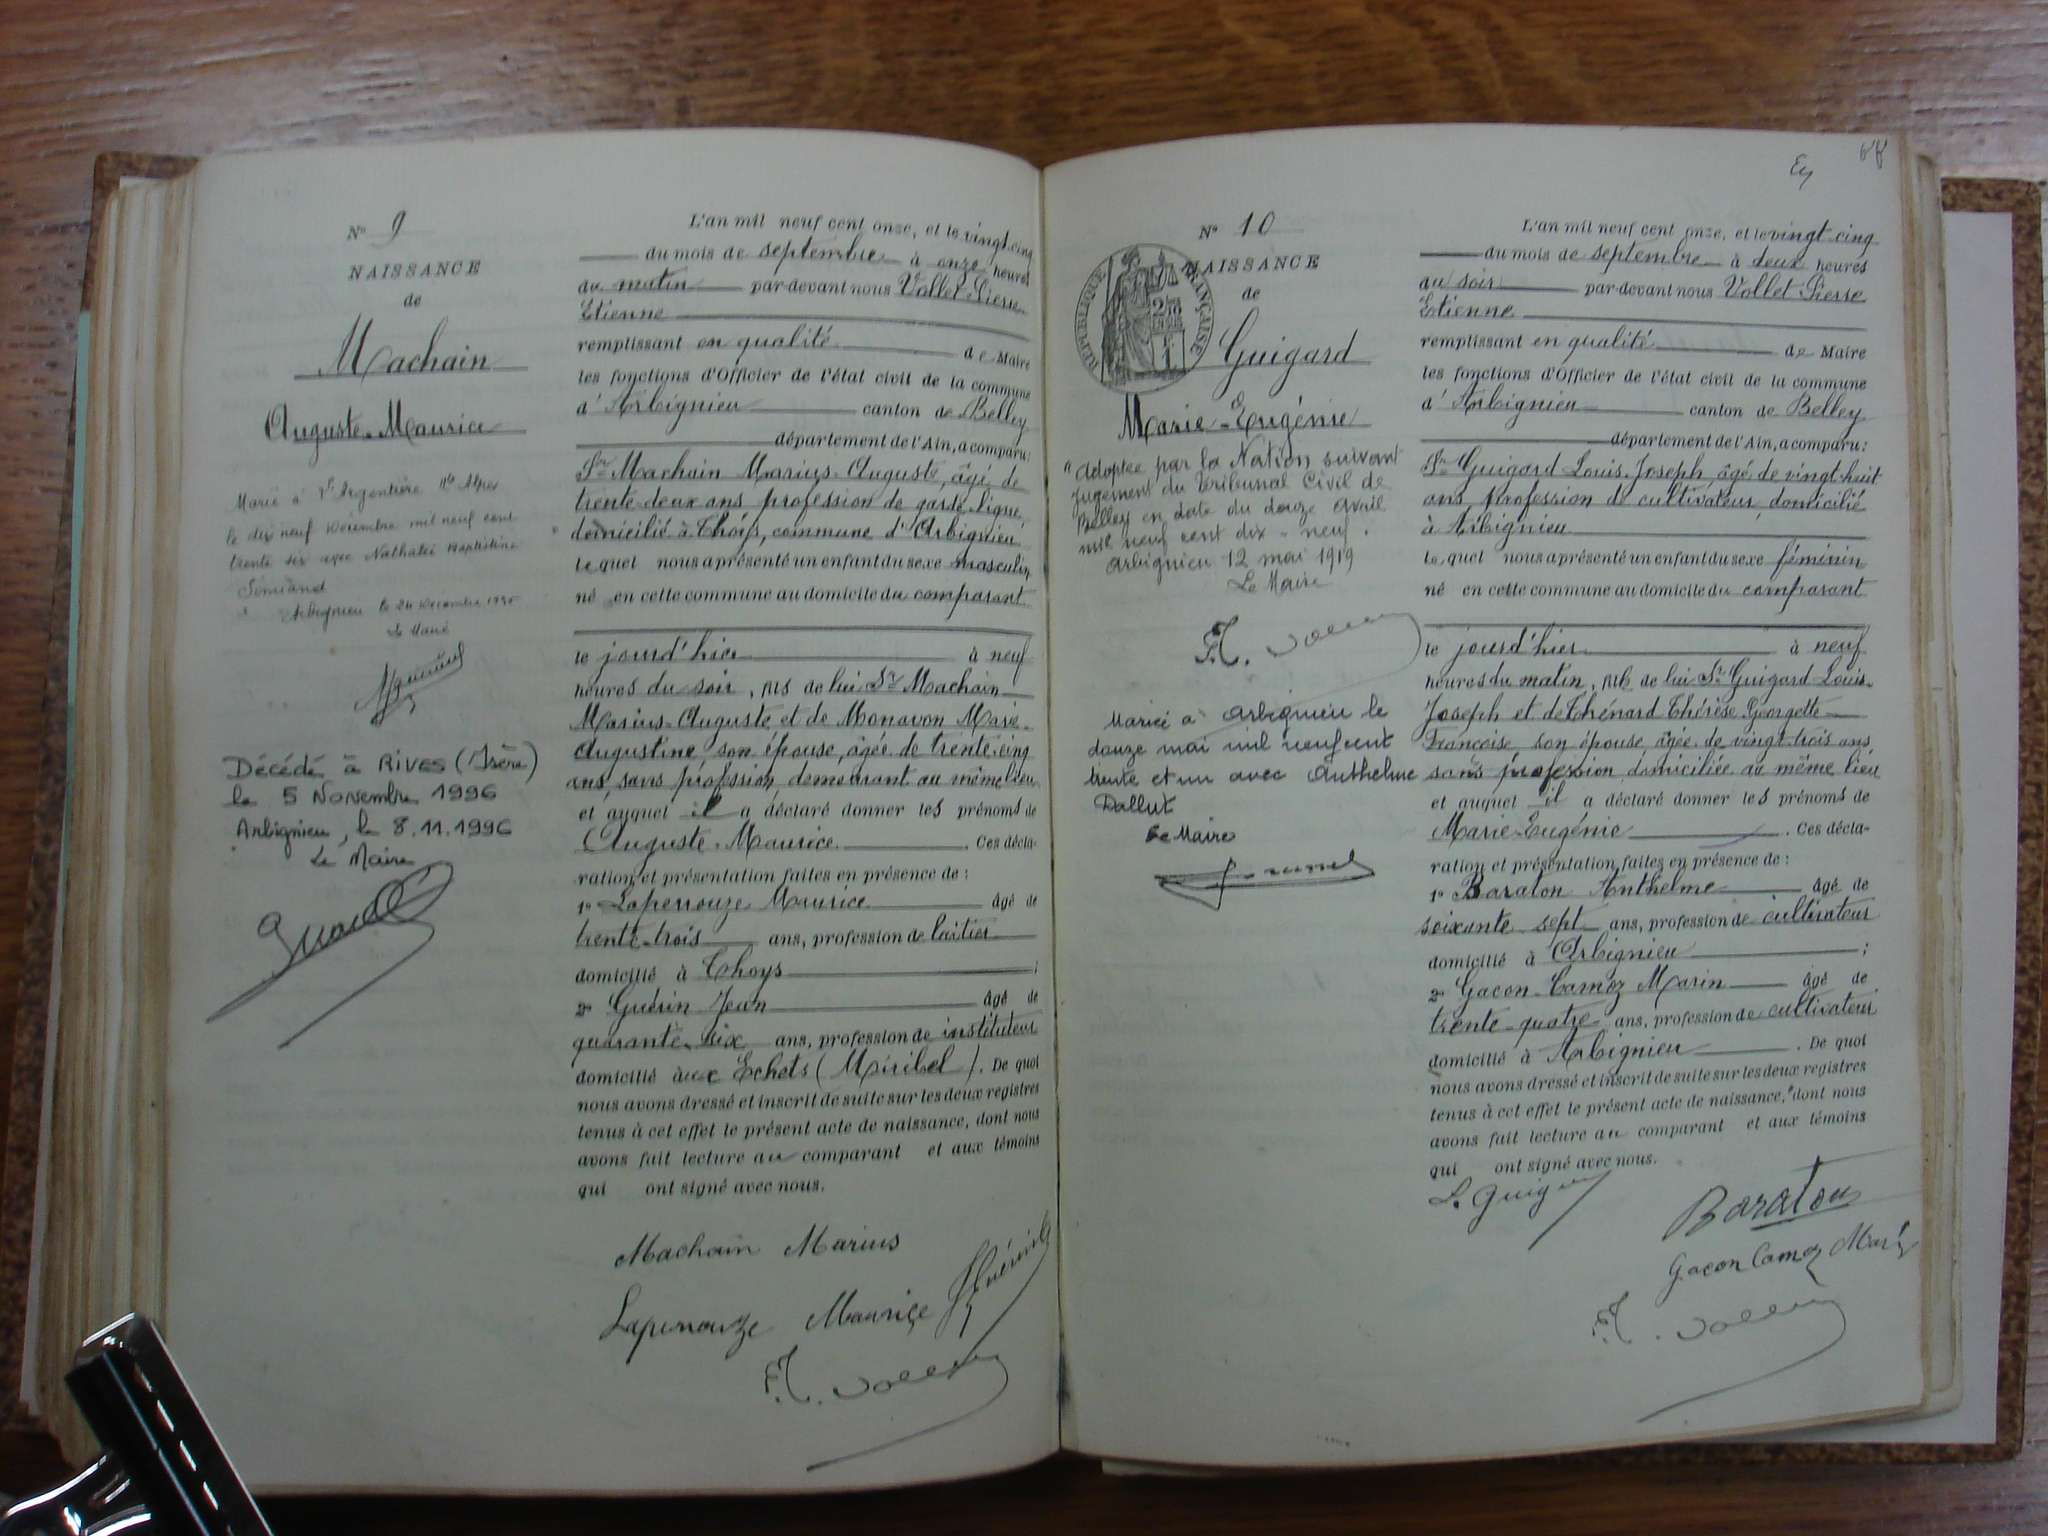 N° 9
NAISSANCE
de
Machain
Auguste-Maurice
Marié à l'Argentière Htes Alpes
le dix neuf décembre mil neuf cent
trente six avec Nathalie Baptistine
Semiand
Arbignieu le 24 décembre
Le Maire
Décédé à RIVES (Isère)
le 5 Novembre 1996
Arbignieu, le 8.11.1996
Le Maire
L'an mil neuf cent onze, et le vingt-cinq
du mois de septembre à onze heures
du matin par-devant nous Vollet Pierre
Etienne
remplissant en qualité de Maire
les fonctions d'Officier de l'état civil de la commune
d'Arbignieu canton de Belley
département de l'Ain, a comparu:
Sr Machain Marius-Auguste, âgé de
trente-deux ans profession de garde-ligne
domicilié à Thoys, commune d'Arbignieu
lequel nous a présenté un enfant du sexe masculin
né en cette commune au domicile du comparant
le jourd'hier à neuf
heures du soir, fils de lui Sr Machain
Marius-Auguste et de Monavon Marie-
Augustine son épouse, âgée de trente-cinq
ans, sans profession, demeurant au même lieu
et auquel il a déclaré donner les prénoms de
Auguste-Maurice. Ces décla-
ration et présentation faites en présence de :
1° Laperrouze Maurice âgé de
trente-trois ans, profession de laitier
domicilié à Thoys ;
2° Guérin Jean âgé de
quarante-six ans, profession de instituteur
domicilié aux Echets (Miribel). De quoi
nous avons dressé et inscrit de suite sur les deux registres
tenus à cet effet le présent acte de naissance, dont nous
avons fait lecture au comparant et aux témoins
qui ont signé avec nous.
Machain Marius
Laperrouze Maurice JGuérin
E. Vollet
N° 10
NAISSANCE
RÉPUBLIQUE FRANÇAISE
de
Guigard
Marie-Eugénie
"Adoptée par la Nation suivant
jugement du Tribunal Civil de
Belley en date du douze avril
mil neuf cent dix-neuf.
Arbignieu 12 mai 1919
Le Maire
E. Vollet
Mariée à Arbignieu le
douze mai mil neuf cent
trente et un avec Anthelme
Dallut
Le Maire
L'an mil neuf cent onze, et le vingt-cinq
du mois de septembre à deux heures
du soir par-devant nous Vollet Pierre
Etienne
remplissant en qualité de Maire
les fonctions d'Officier de l'état civil de la commune
d'Arbignieu canton de Belley
département de l'Ain, a comparu:
Sr Guigard Louis-Joseph, âgé de vingt-huit
ans profession de cultivateur, domicilié
à Arbignieu
lequel nous a présenté un enfant du sexe féminin
né en cette commune au domicile du comparant
le jourd'hier à neuf
heures du matin, fille de lui Sr Guigard Louis-
Joseph et de Thénard Thérèse Georgette
Françoise, son épouse, âgée de vingt-trois ans
sans profession domiciliée au même lieu
et auquel il a déclaré donner les prénoms de
Marie-Eugénie. Ces décla-
ration et présentation faites en présence de :
1° Baraton Anthelme âgé de
soixante-sept ans, profession de cultivateur
domicilié à Arbignieu ;
2° Gacon-Camoz Marin âgé de
trente-quatre ans, profession de cultivateur
domicilié à Arbignieu. De quoi
nous avons dressé et inscrit de suite sur les deux registres
tenus à cet effet le présent acte de naissance, dont nous
avons fait lecture au comparant et aux témoins
qui ont signé avec nous.
L. Guigard
Baraton
Gacon Camoz Marin
E. Vollet